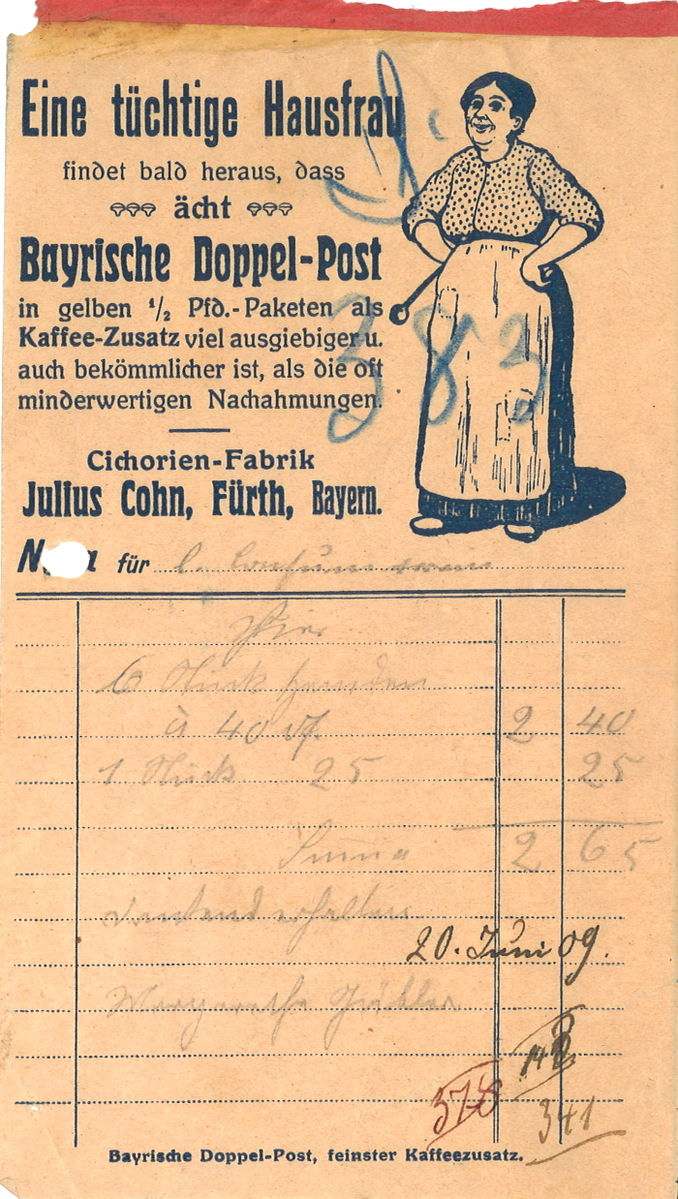 Eine tüchtige Hausfrau
findet bald heraus, dass
ächt
Bayrische Doppel-Post
in gelben 1/2 Pfd.-Paketen als
Kaffee-Zusatz viel ausgiebiger u.
auch bekömmlicher ist, als die oft
minderwertigen Nachahmungen.
383
Cichorien-Fabrik
Julius Cohn, Fürth, Bayern.
für
Hier
6 Stück Hemden
à 40 2 40
1 Stück 25 25
Summa 2 65
dankend erhalten
20. Juni 09.
Margarethe
378
341
Bayrische Doppel-Post, feinster Kaffeezusatz.